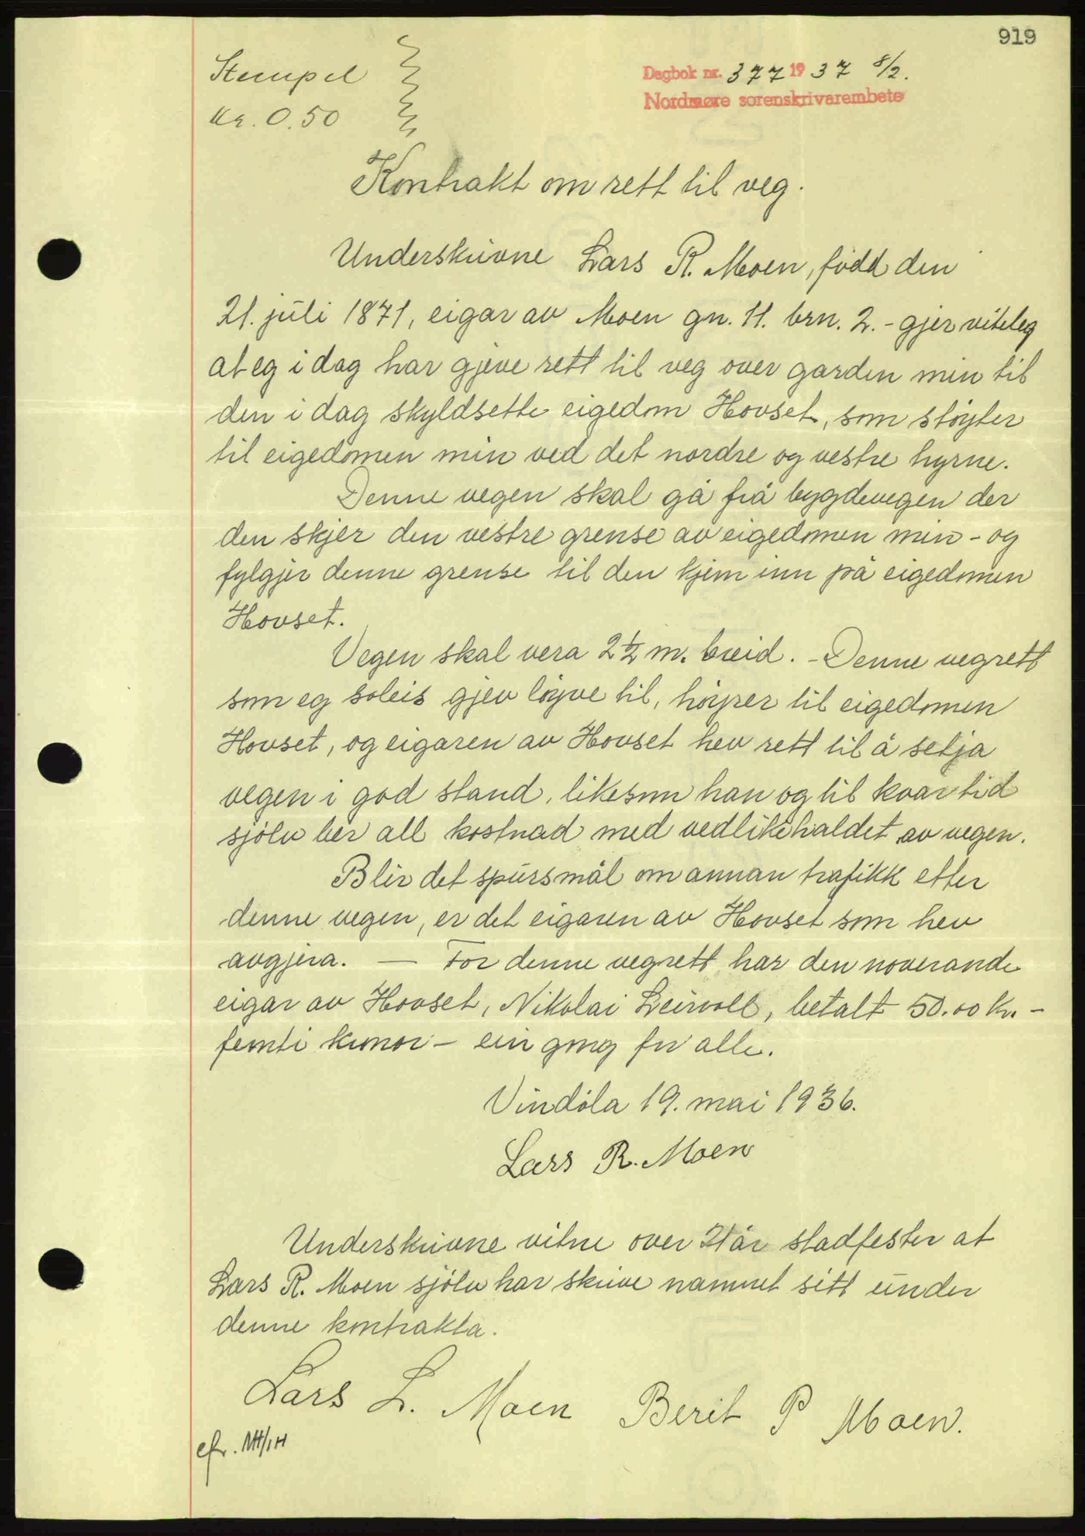 919
Stempel
Kr. 0.50
Dagbok nr. 377 1937 8/2.
Nordmøre sorenskrivarembete
Kontrakt om rett til veg.
Underskrivne Lars R. Moen, fødd den
21. juli 1871, eigar av Moen gn. 11. brn. 2. - gjer viteleg
at eg i dag har gjeve rett til veg over garden min til
den i dag skyldsette eigedom Hovset, som støyter
til eigedomen min ved det nordre og vestre hyrne.
Denne vegen skal gå frå bygdevegen der
den skjer den vestre grense av eigedomen min - og
fylgjer denne grense til den kjem inn på eigedomen
Hovset.
Vegen skal vera 2 1/2 m. breid. - Denne vegrett
som eg soleis gjev løyve til, høyrer til eigedomen
Hovset, og eigaren av Hovset hev rett til å setja
vegen i god stand, likesom han og til kvar tid
sjølv ber all kostnad med vedlikehaldet av vegen.
Blir det spursmål om annan trafikk etter
denne vegen, er det eigaren av Hovset som hev
avgjera. — For denne vegrett har den noverande
eigar av Hovset, Nikolai Leirvoll, betalt 50.00 Kr. -
femti kronor - ein gong for alle.
Vindøla 19. mai 1936.
Lars R. Moen
Underskrivne vitne over 21 år stadfester at
Lars R. Moen sjølv har skrive namnet sitt under
denne kontrakta.
Lars L. Moen Berit P Moen.
cfr. NH/IH